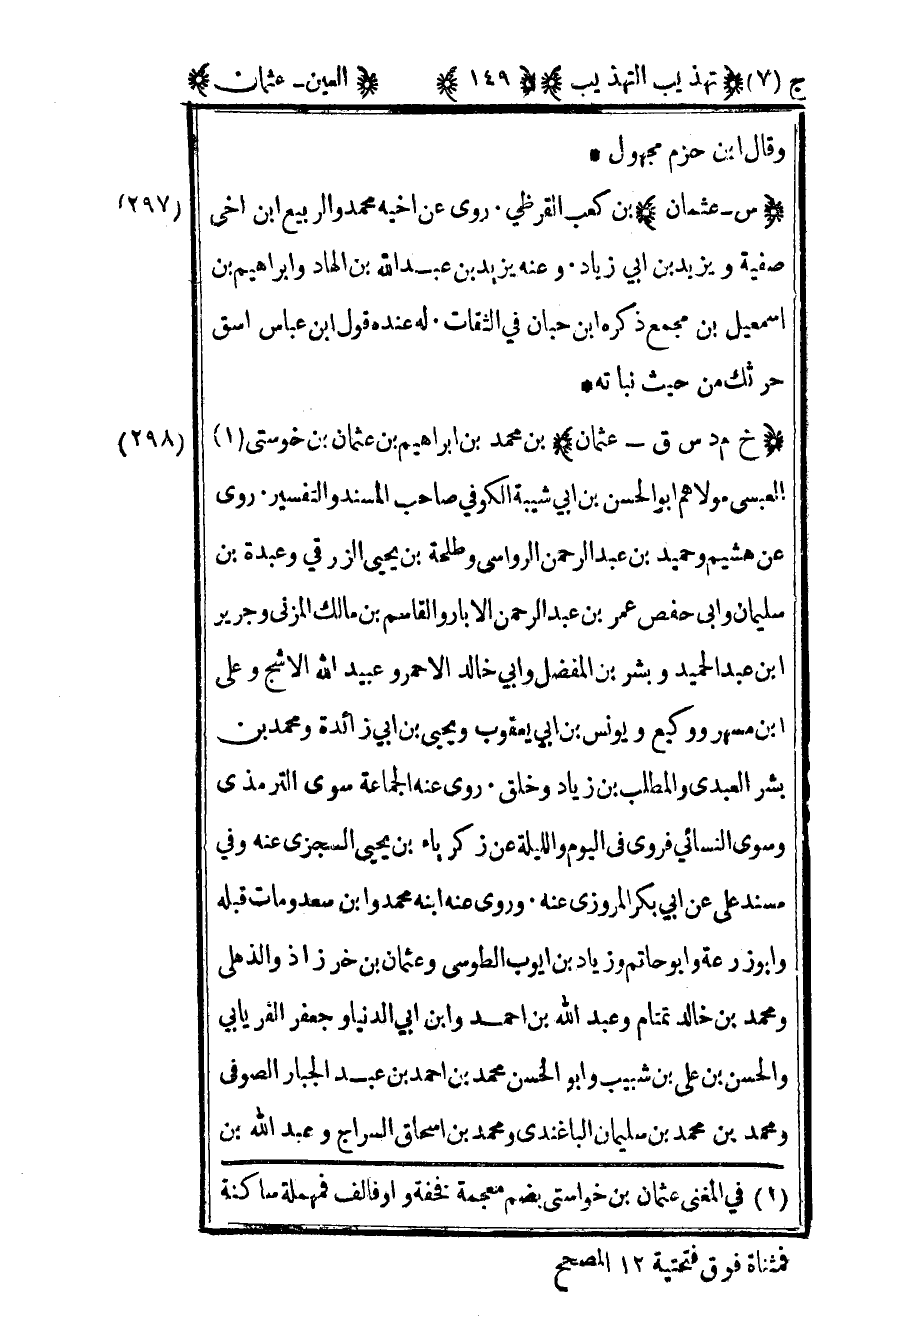 ج (٧) ﴿ تهذيب التهذيب ﴾ ﴿ ١٤٩ ﴾ ﴿ العين ـ عثمان ﴾
وقال ابن حزم مجهول *
﴿ س ـ عثمان ﴾ بن كعب القرظي . روى عن اخيه محمد والربيع ابن اخى (٢٩٧)
صفية ويزيد بن ابي زياد . وعنه يزيد بن عبد الله بن الهاد وابراهيم بن
اسمعيل بن مجمع ذكره ابن حبان في الثقات . له عنده قول ابن عباس اسق
حرثك من حيث نباته *
﴿ خ م د س ق ـ عثمان ﴾ بن محمد بن ابراهيم بن عثمان بن خوستى (١) (٢٩٨)
العبسى مولاهم ابو الحسن بن ابي شيبة الكوفي صاحب المسند والتفسير . روى
عن هشيم وحميد بن عبد الرحمن الرواسى وطلحة بن يحيى الزرقي وعبدة بن
سليمان وابى حفص عمر بن عبد الرحمن الابار والقاسم بن مالك المزنى وجرير
ابن عبد الحميد وبشر بن المفضل وابي خالد الاحمر وعبيد الله الاشجع وعلى
ابن مسهر ووكيع ويونس بن ابي يعقوب ويحيى بن ابي زائدة ومحمد بن
بشر العبدى والمطلب بن زياد وخلق . روى عنه الجماعة سوى الترمذى
وسوى النسائي فروى فى اليوم والليلة عن زكرياء بن يحيى السجزى عنه وفي
مسند على عن ابي بكر المروزى عنه . وروى عنه ابنه محمد وابن سعد ومات قبله
وابو زرعة وابو حاتم وزياد بن ايوب الطوسى وعثمان بن خرزاذ والذهلى
ومحمد بن خالد تمتام وعبد الله بن احمد وابن ابي الدنيا وجعفر الفريابي
والحسن بن على بن شبيب وابو الحسن محمد بن احمد بن عبد الجبار الصوفى
ومحمد بن محمد بن سليمان الباغندى ومحمد بن اسحاق السراج وعبد الله بن
(١) في المغنى عثمان بن خواستى بضم معجمة فخفة واو فالف فمهملة ساكنة
فمثناة فوق فتحتية ١٢ المصحح